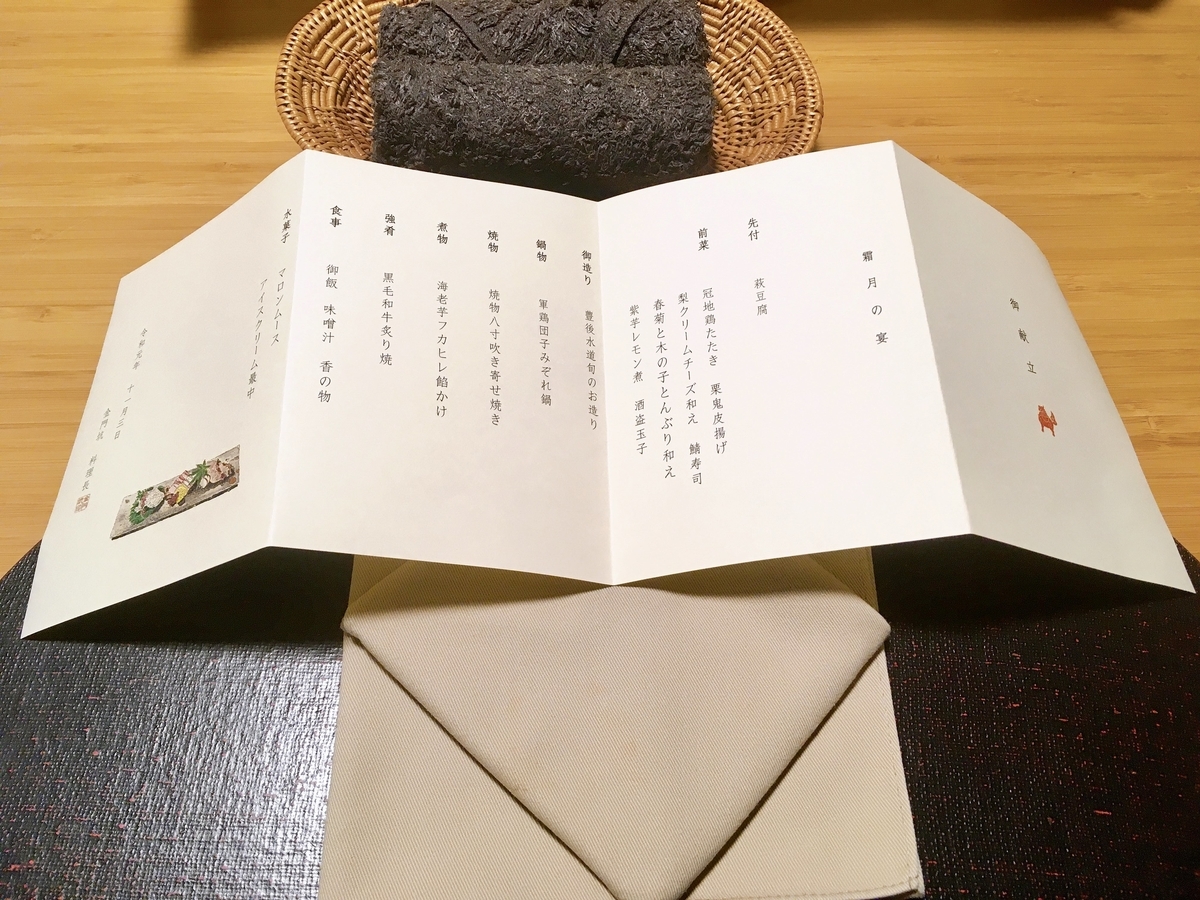 御献立
霜月の宴
先付　萩豆腐
前菜　冠地鶏たたき　栗鬼皮揚げ
梨クリームチーズ和え　鯖寿司
春菊と木の子とんぶり和え
紫芋レモン煮　酒盗玉子
御造り　豊後水道旬のお造り
鍋物　軍鶏団子みぞれ鍋
焼物　焼物八寸吹き寄せ焼き
煮物　海老芋フカヒレ餡かけ
強肴　黒毛和牛炙り焼
食事　御飯　味噌汁　香の物
水菓子　マロンムース
アイスクリーム最中
令和元年　十一月三日
料理長